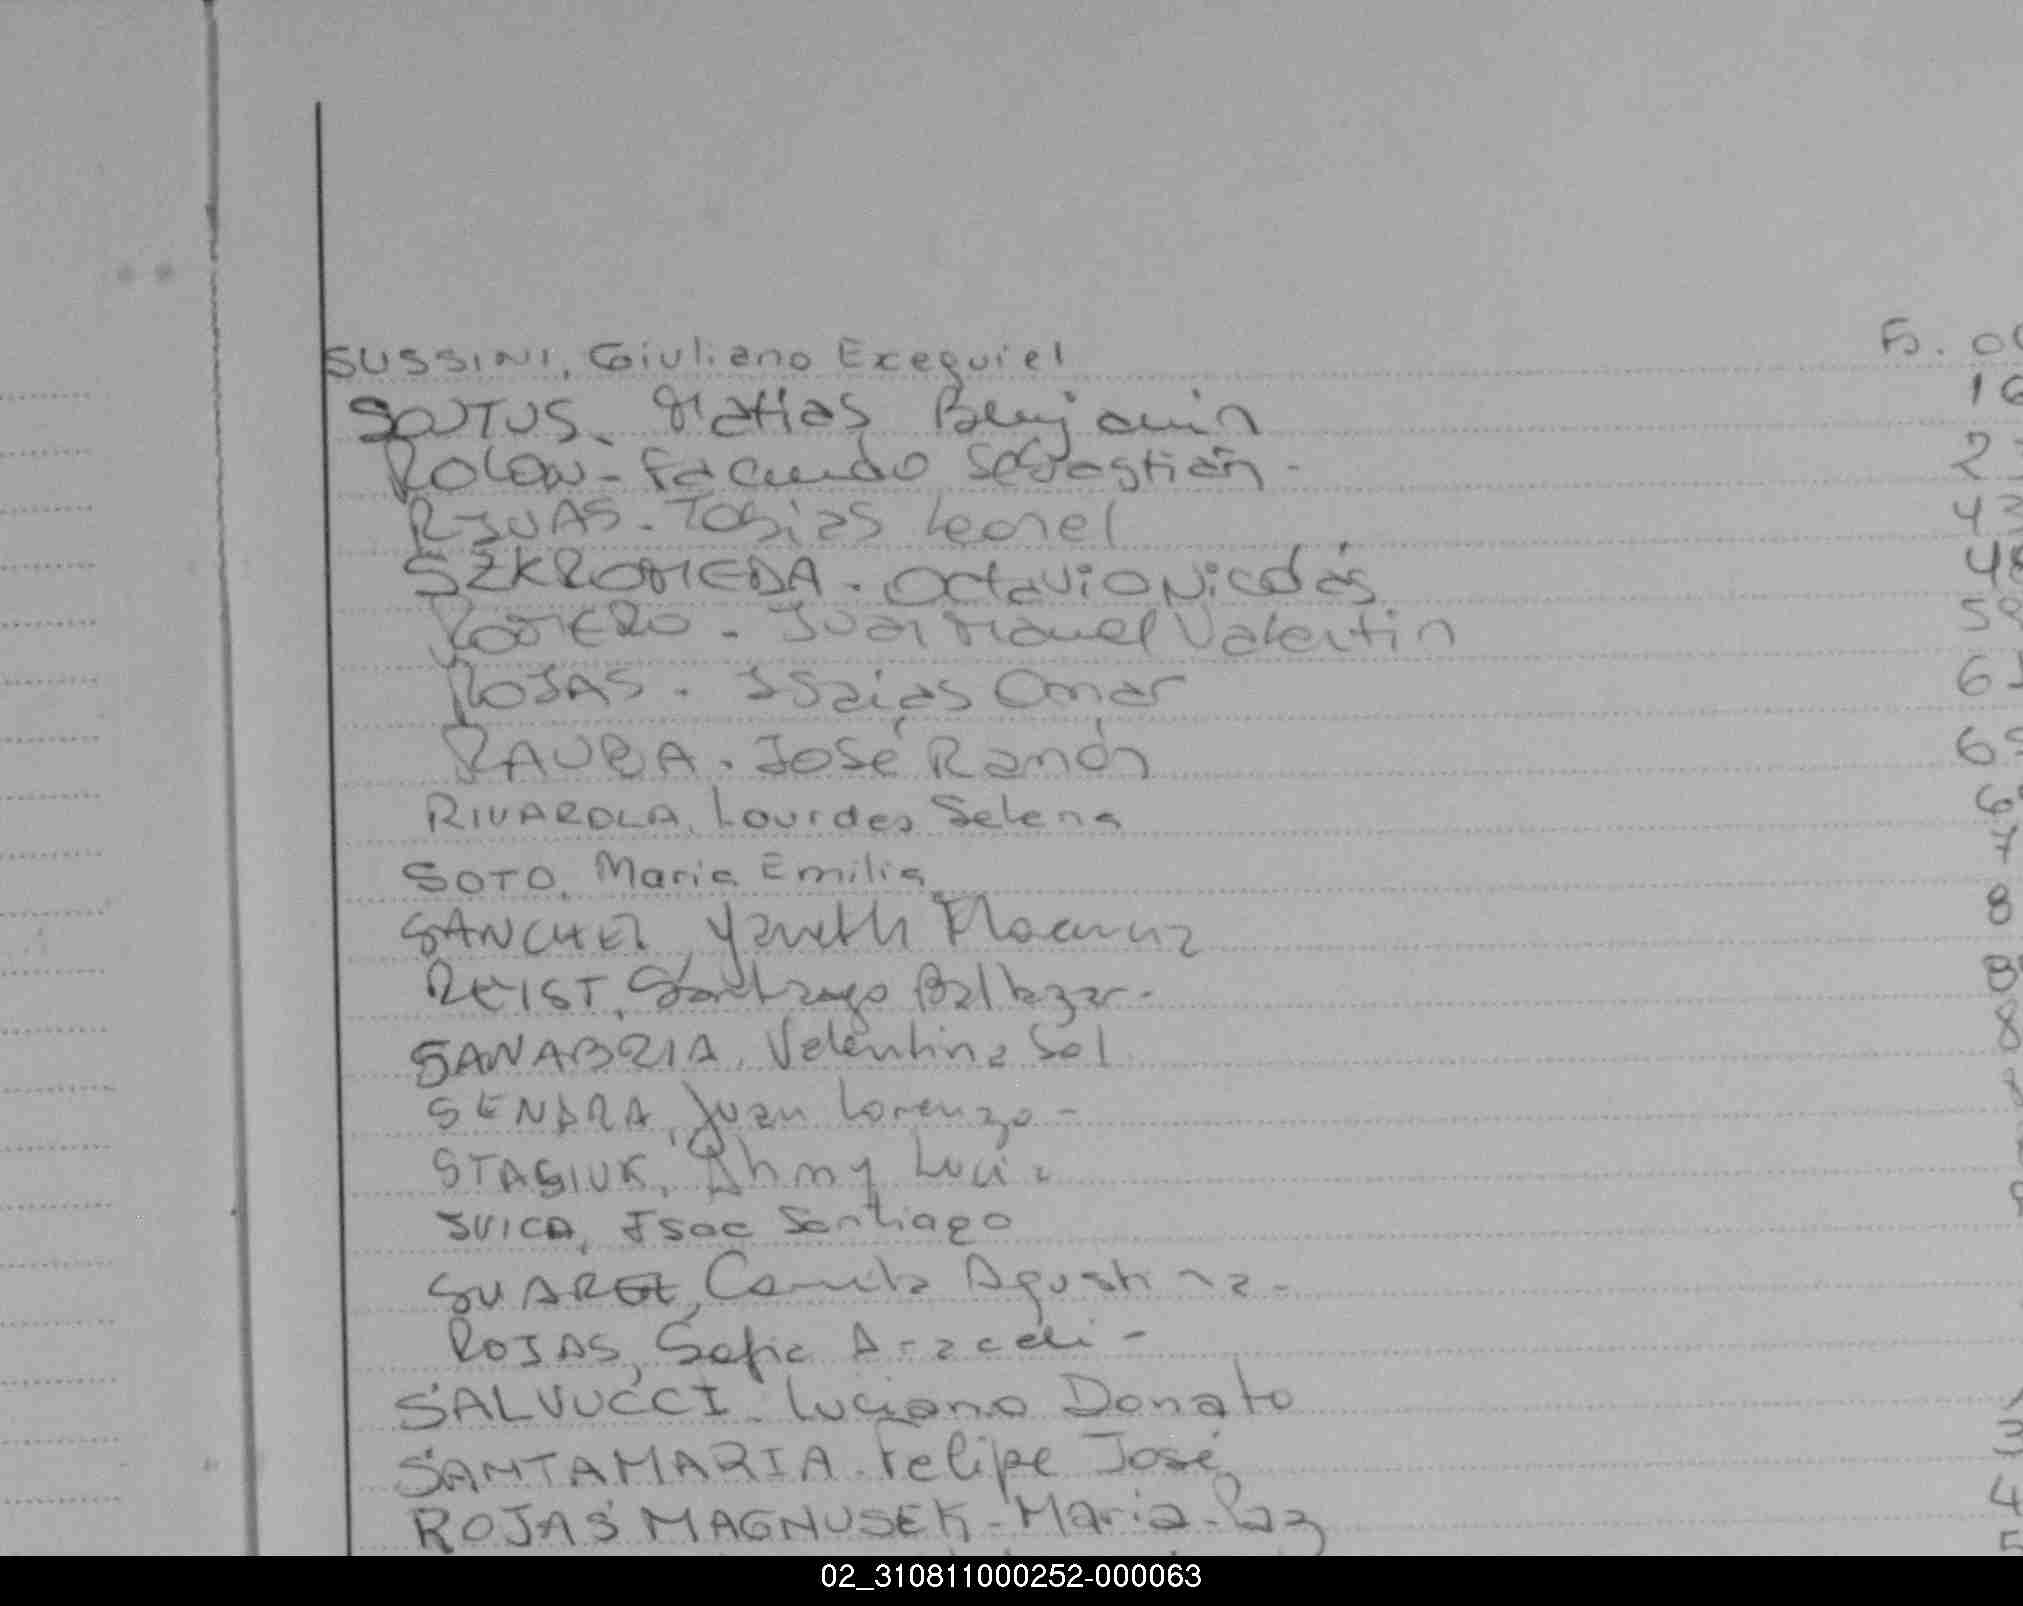 SUSSINI, Giuliano Exequiel Fs. 0
SOUTUS. Matias Benjamin 16
ROLON - Facundo Sebastián - 2
RIVAS - Tobias Leonel 43
SZKROMEDA - Octavio Nicolás 48
ROMERO - Juan Manuel Valentin 59
ROJAS - Isaias Omar 61
RAUBA - José Ramón 65
RIVAROLA, Lourdes Selena 6
SOTO, Maria Emilia 7
SANCHEZ, Yaneth 8
REIST, Santiago Baltazar - 8
SANABRIA, Valentina Sol 8
SENDRA, Juan Lorenzo - 8
STASIUK, Ahmy Lucia
SVICA, Isac Santiago
SUAREZ, Camila Agustina -
ROJAS, Sofia Araceli -
SALVUCCI - Luciano Donato
SANTAMARIA - Felipe José 3
ROJAS MAGNUSEK - Maria - Paz 4
5
02_310811000252-000063